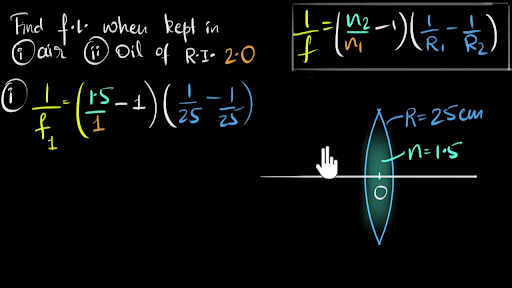 Find f.l. when kept in
(i) air (ii) Oil of R.I. 2.0
1/f = (n₂/n₁ - 1)(1/R₁ - 1/R₂)
(i) 1/f₁ = (1.5/1 - 1)(1/25 - 1/25)
R = 25cm
n = 1.5
O